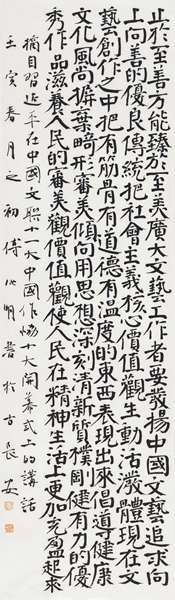 止於至善方能臻於至美廣大文藝工作者要發揚中國文藝追求向
上向善的優良傳統把社會主義核心價值觀生動活潑體現在文
藝創作之中把有筋骨有道德有温度的東西表現出來倡導健康
文化風尚摒棄畸形審美傾向用思想深刻清新質樸剛健有力的優
秀作品滋養人民的審美觀價值觀使人民在精神生活上更加充盈起來
摘自習近平在中國文聯十一大中國作協十大開幕式上的講話
壬寅春月之初傅明書於古長安